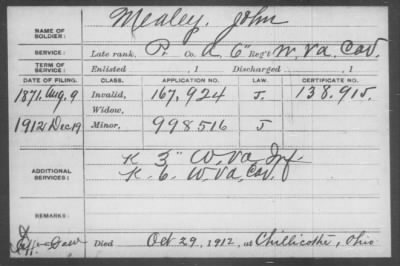 NAME OF SOLDIER: Mealey, John
SERVICE: Late rank, Pr Co. A, 6" Reg't W. Va. Cav.
TERM OF SERVICE: Enlisted , 1 Discharged , 1
DATE OF FILING. CLASS. APPLICATION NO. LAW. CERTIFICATE NO.
1871. Aug. 9 Invalid, 167,924 J. 138,915.
Widow,
1912 Dec 19 Minor, 998516 J
ADDITIONAL SERVICES: K 3" W. Va. Inf
K. 6. W. Va. Cav.
REMARKS:
Died Oct 29, 1912, at Chillicothe, Ohio